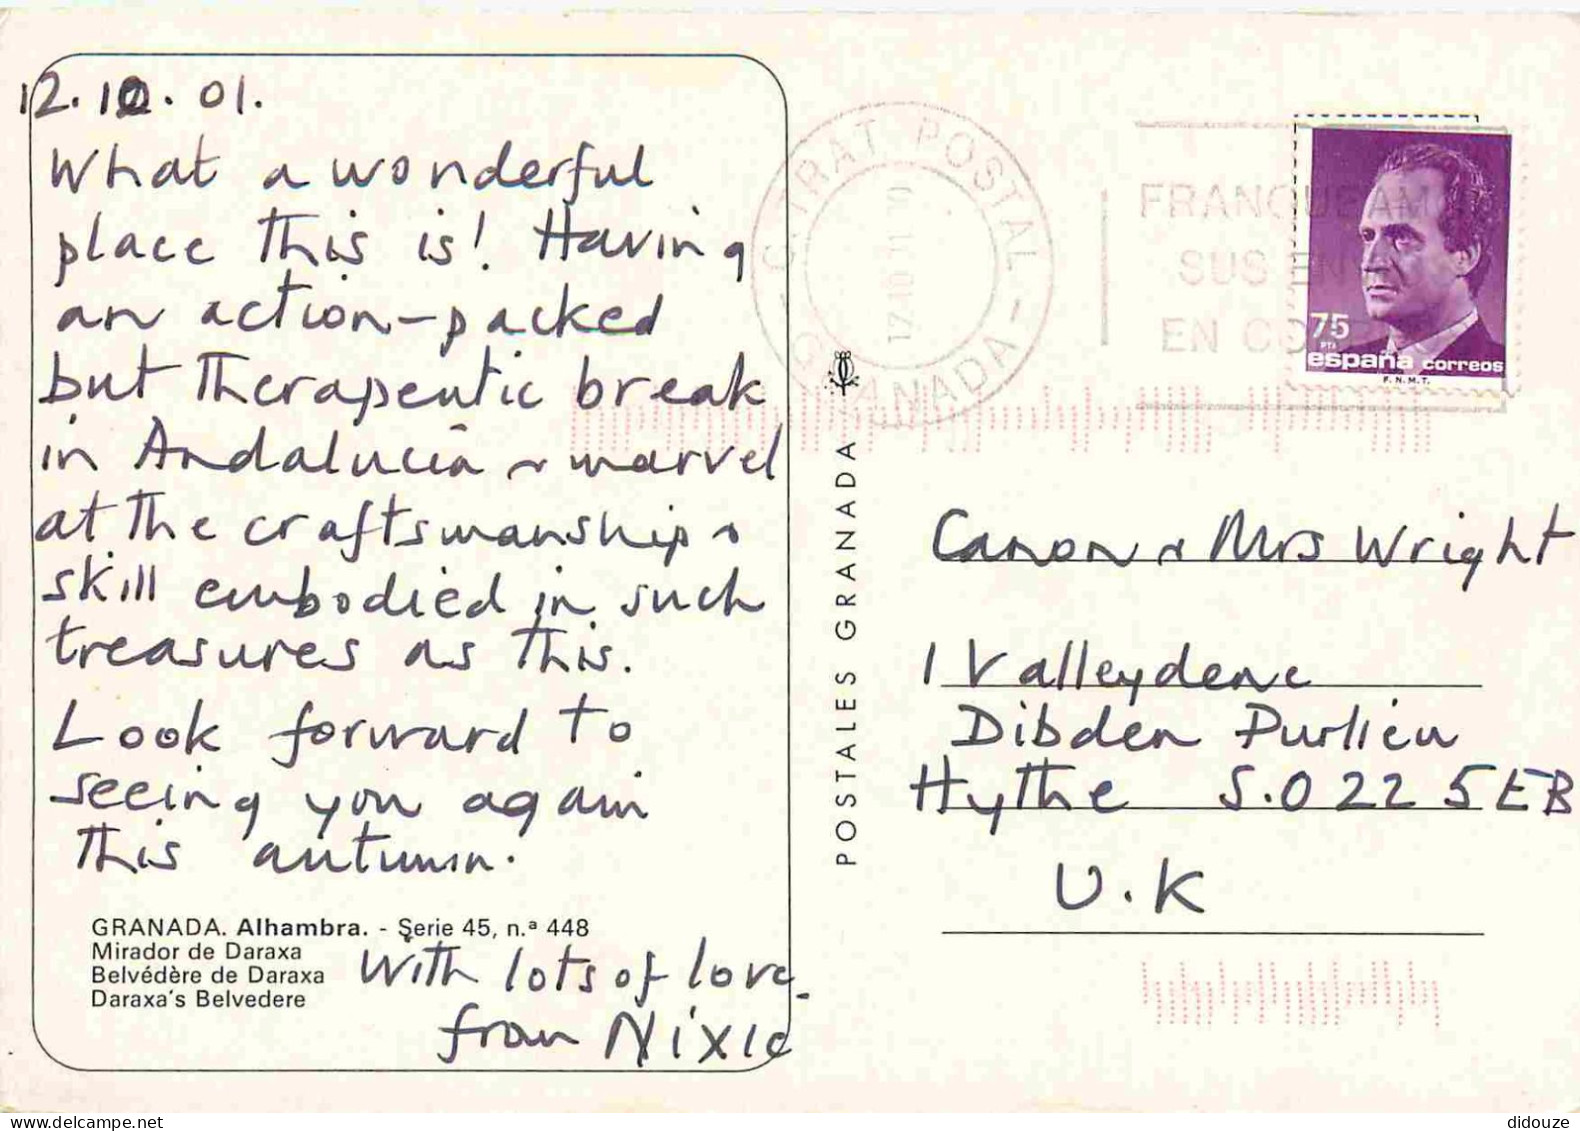 12.10.01.
What a wonderful
place this is! Having
an action-packed
but therapeutic break
in Andalucia & marvel
at the craftsmanship &
skill embodied in such
treasures as this.
Look forward to
seeing you again
this autumn.
With lots of love.
from Nixie
GRANADA. Alhambra. - Serie 45, n.ª 448
Mirador de Daraxa
Belvédère de Daraxa
Daraxa's Belvedere
POSTALES GRANADA
C.TRAT POSTAL
- GRANADA -
FRANQUEAM
SUS EN
EN CO
75
PTA
españa correos
F.N.M.T.
Canon & Mrs Wright
1 Valleydene
Dibden Purlieu
Hythe S.O22 5EB
U.K
didouze